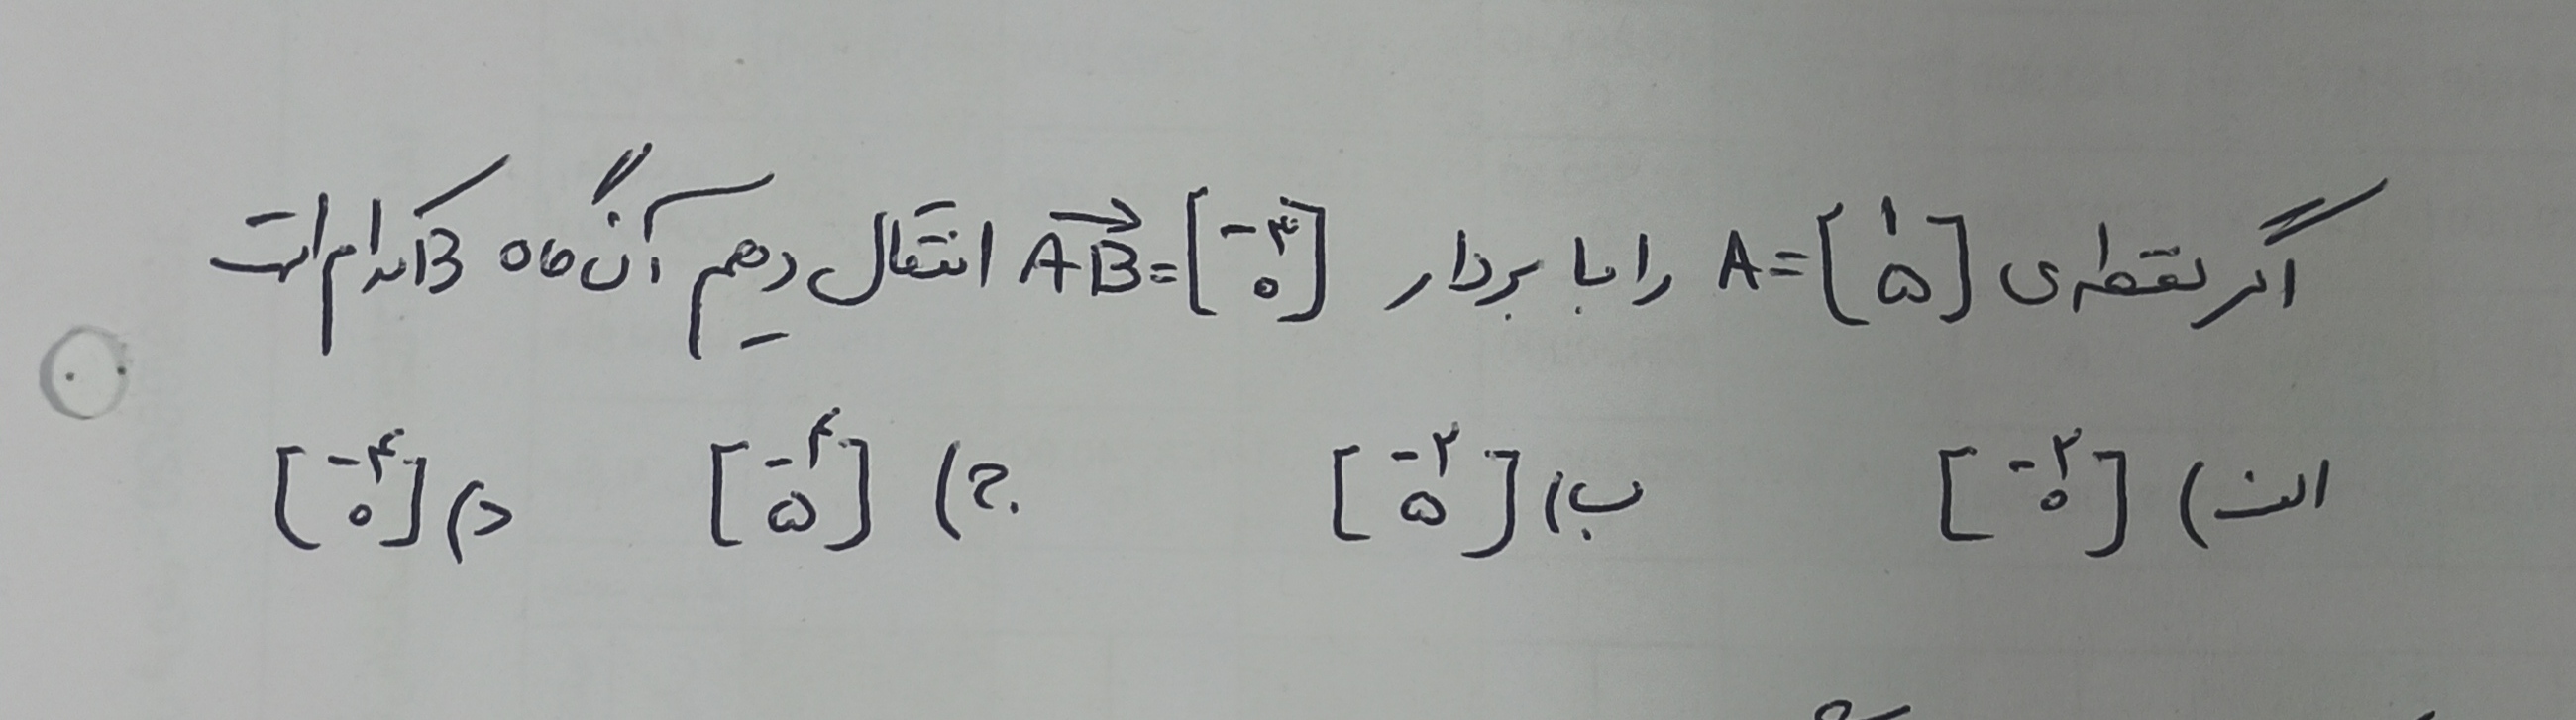 اگر نقطه‌ی A = [۱ ۵] را با بردار AB = [-۳ ۰] انتقال دهیم آن گاه B کدام است
الف) [-۲ ۰] ب) [-۲ ۵] ج) [-۴ ۵] د) [-۴ ۰]